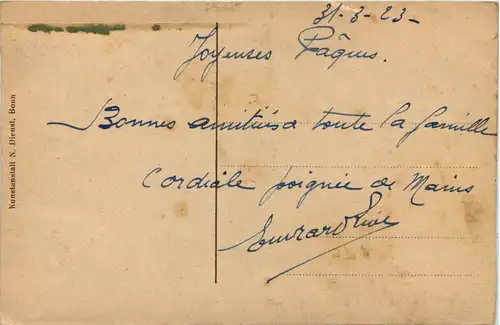 31-3-23-
Joyeuses Pâques.
Bonnes amitiés à toute la famille
Cordiale poignée de Mains
Kunstanstalt N. Dienst, Bonn